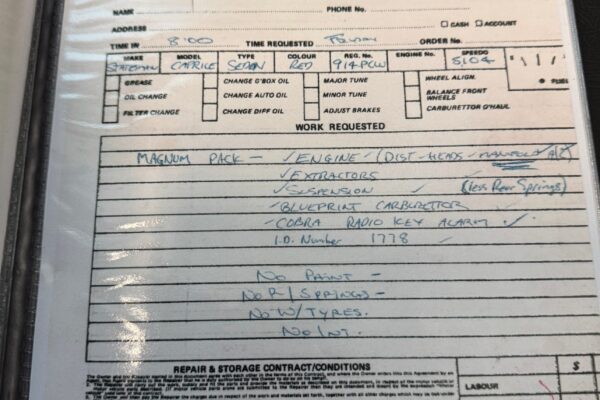 NAME PHONE No.
ADDRESS CASH ACCOUNT
TIME IN 8:00 TIME REQUESTED ORDER No.
MAKE MODEL TYPE COLOUR REG. No. ENGINE No. SPEEDO
STATESMAN CAPRICE SEDAN RED 914-PCW 5104
GREASE CHANGE G'BOX OIL MAJOR TUNE WHEEL ALIGN.
OIL CHANGE CHANGE AUTO OIL MINOR TUNE BALANCE FRONT WHEELS
FILTER CHANGE CHANGE DIFF OIL ADJUST BRAKES CARBURETTOR O'HAUL
WORK REQUESTED
MAGNUM PACK - ✓ENGINE (DIST-HEADS-MANIFOLD
✓EXTRACTORS
✓SUSPENSION ✓ (less Rear Springs)
✓BLUEPRINT CARBURETTOR
✓COBRA RADIO KEY ALARM ✓
I.D. Number 1778
NO PAINT -
NO R/SPRINGS -
NO W/TYRES.
NO INT.
REPAIR & STORAGE CONTRACT/CONDITIONS
LABOUR
$